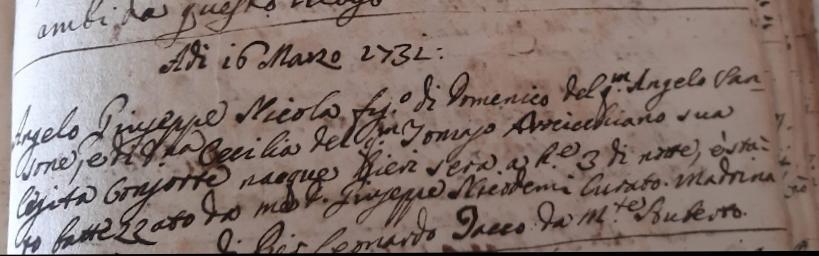 ambi da questo luogo
Adi 16 Marzo 1731:
Angelo Giuseppe Nicola fig.º di Domenico del q.m Angelo San-
sone, e di D.na Cecilia del q.m Tomaso sua
legita Consorte nacque Hieri sera a h.e 3 di notte, è sta-
to battezzato da me D. Giuseppe Nicodemi Curato. Madrina
di Pier Leonardo da M.te